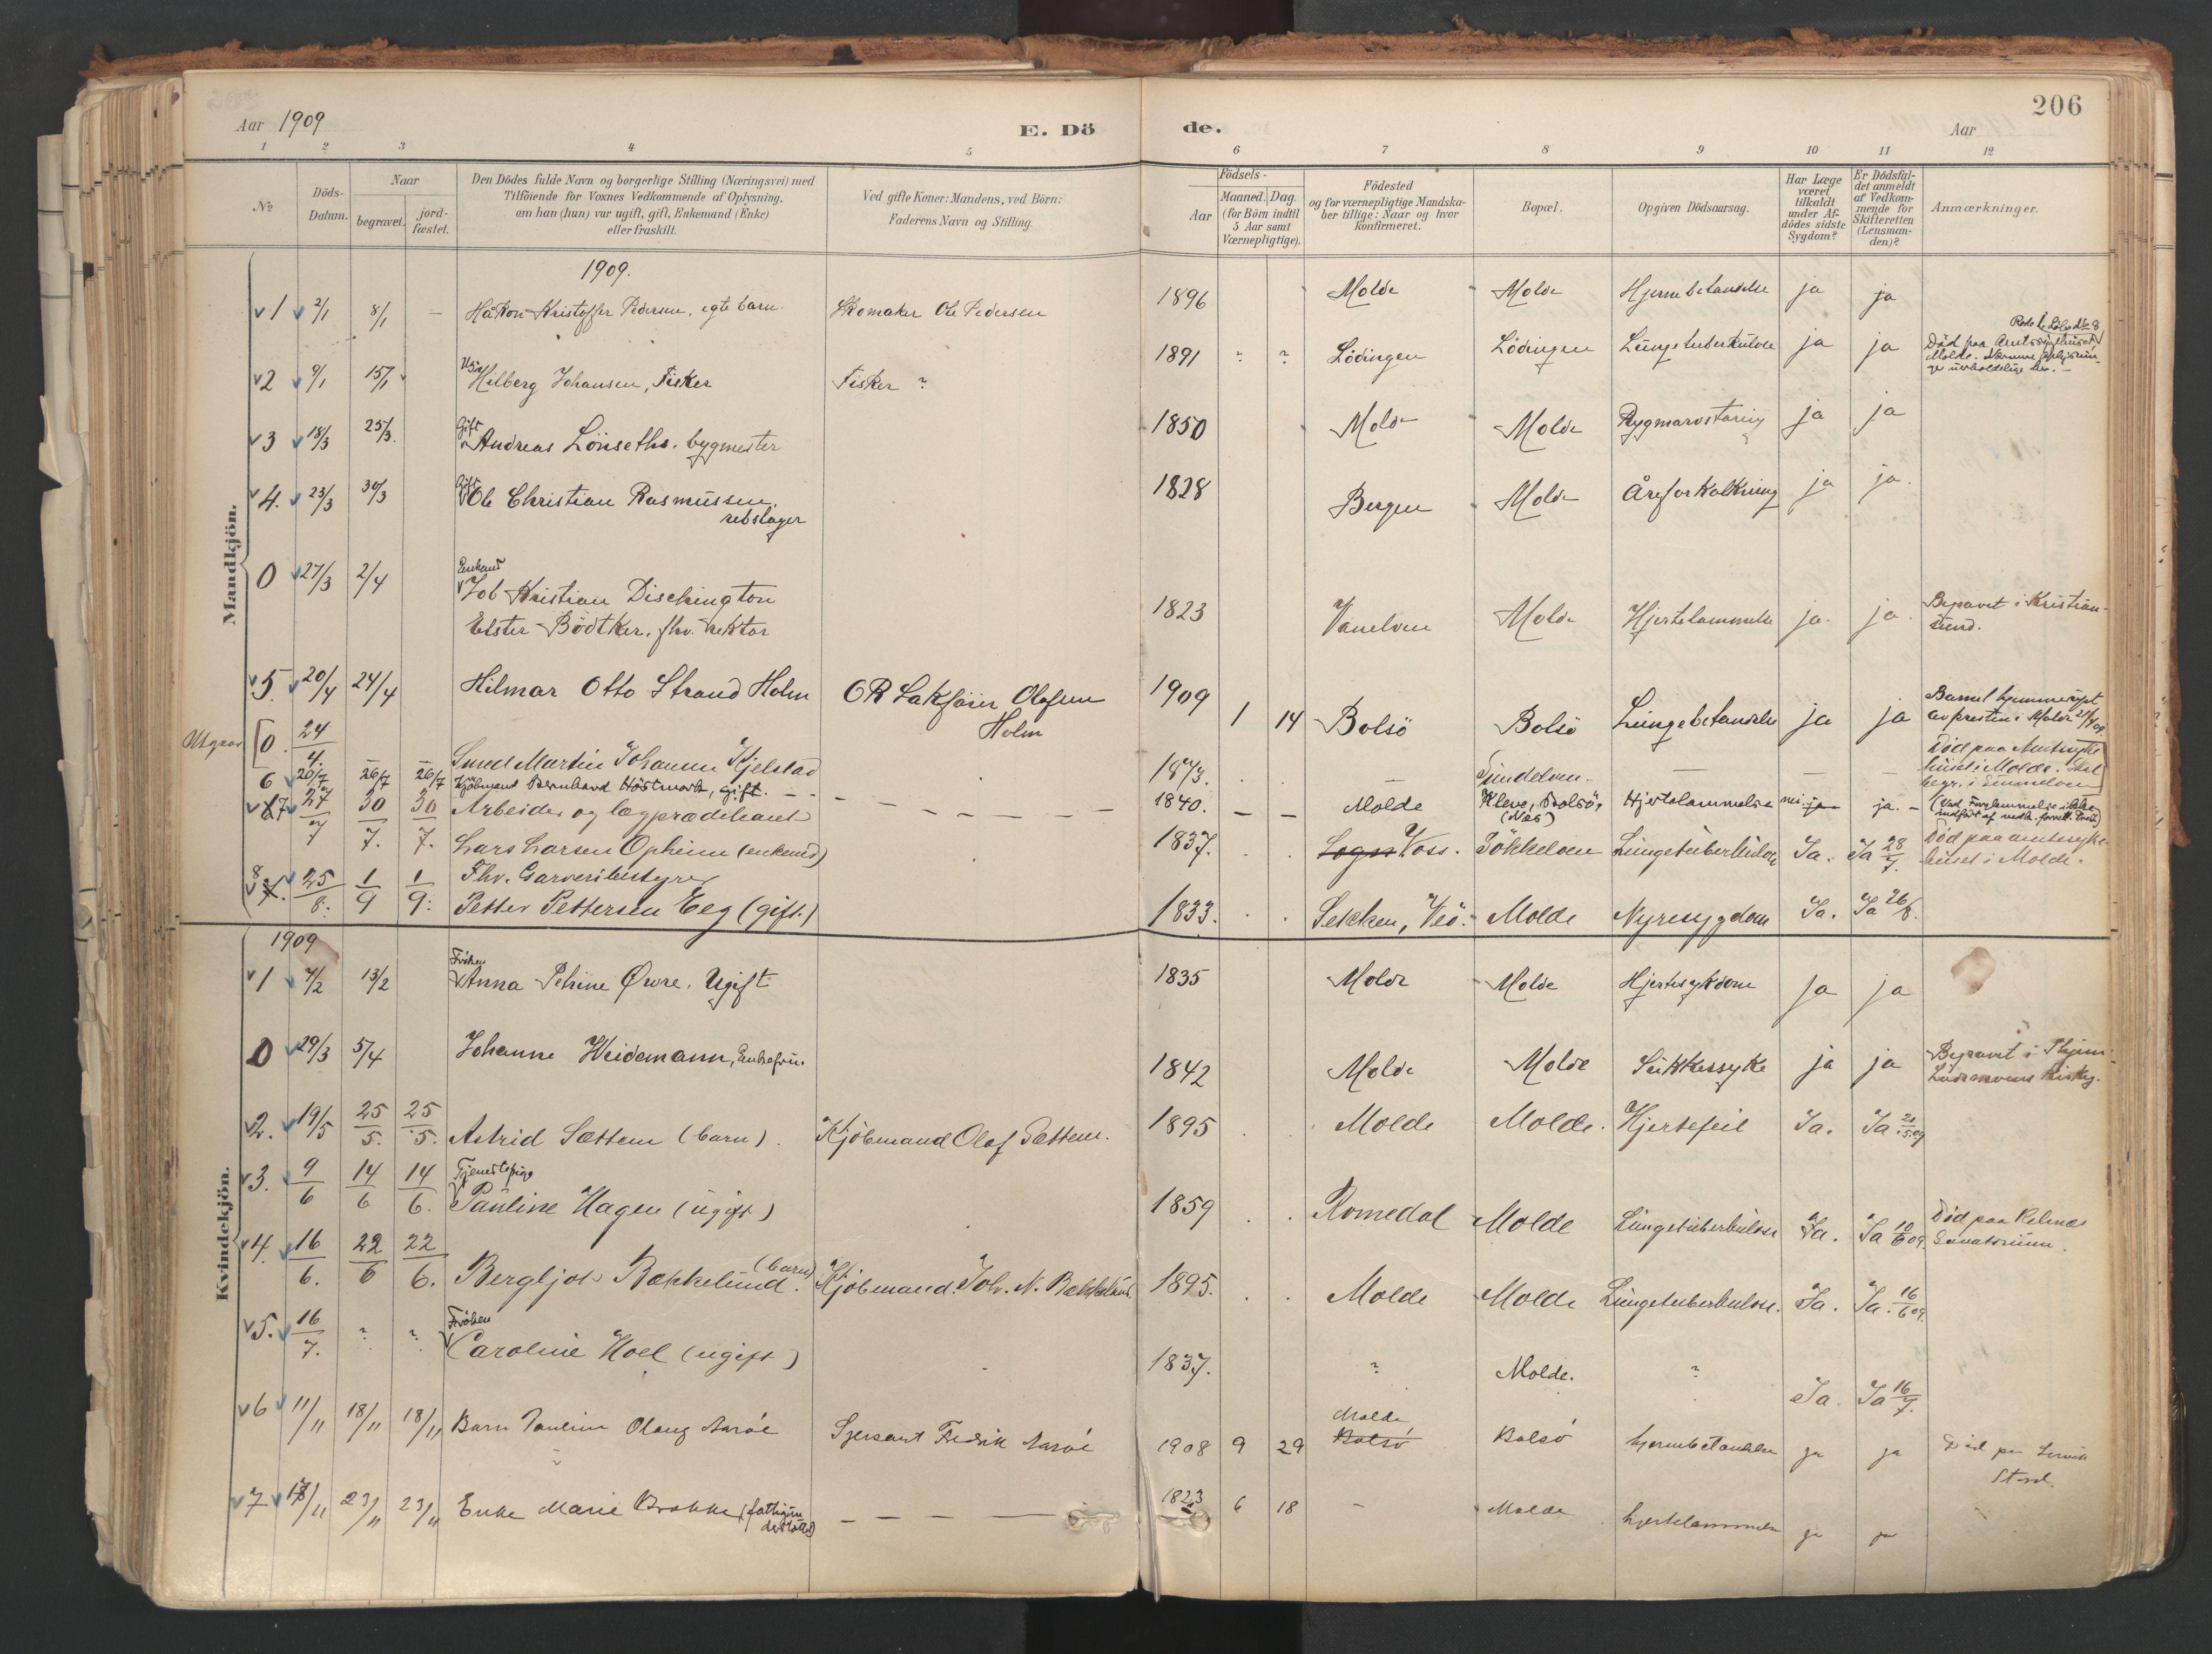 206
Aar 1909
E. Dö
de.
Aar
1 2 3 4 5 6 7 8 9 10 11 12
№
Döds-Datum.
Naar
begravet.
jord-fæstet.
Den Dödes fulde Navn og borgerlige Stilling (Næringsvei) med
Tilföiende for Voxnes Vedkommende af Oplysning.
om han (hun) var ugift, gift, Enkemand (Enke)
eller fraskilt.
Ved gifte Koner: Mandens, ved Börn:
Faderens Navn og Stilling.
Födsels-
Aar
Maaned. Dag.
(for Börn indtil
5 Aar samt
Værnepligtige).
Födested
og for værnepligtige Mandska-
ber tillige: Naar og hvor
konfirmeret.
Bopæl.
Opgiven Dödsaarsag.
Har Læge
været
tilkaldt
under Af-
dödes sidste
Sygdom?
Er Dödsfal-
det anmeldt
af Vedkom-
mende for
Skifteretten
(Lensman-
den)?
Anmærkninger.
Mandkjön.
1909.
1 2/1 8/1 — Håkon Kristoffer Pedersen, egte barn. Skomaker Ole Pedersen 1896 Molde Molde Hjernebetændelse ja ja
2 9/1 15/1 Ugift Hilberg Johansen, Fisker Fisker ? 1891 ? ? Lödingen Lödingen Lungetuberkulose ja ja Död paa Amtssygehuset Molde.
3 18/3 25/3. Gift Andreas Lönseths. bygmester 1850 Molde Molde Rygmarvstæring ja ja
4. 23/3 30/3 Gift Ole Christian Rasmussen, rebslager 1828 Bergen Molde Åreforkalkning ja ja.
0 27/3 2/4 Enkemd Job Kristian Dischington
Elster Bödtker, fhv. rektor 1823 Vanelven Molde Hjertelammelse ja. ja. Begravet i Kristian-
sund.
5. 20/4 24/4 Hilmar Otto Strand Holm OR Sakförer Olafsen Holm 1909 1 14 Bolsö Bolsö Lungebetændelse ja ja Barnet hjemmedöpt
av presten i Molde
Utgaar [0. 24/4. Smed Martin Johannes Hjelstad 1873. — Sundelven. — — — Död paa Amtssyke-
huset i Molde.
6 20/7 26/7 26/7 Kjöbmand Bernhard Höstmark, gift. — — — — — — 1840. — — Molde Kleve, Bolsö, (Nes) Hjertelammelse nei ja ja. —
7 27/7 30/7. 30/7. Arbeider og lægprædikant
Lars Larsen Opheim (enkemd) 1837. Sogn Voss. Jökkelven Lungetuberkulose Ja. Ja 28/7. Död paa amtssyke-
huset i Molde.
8 7. 25/8. 1/9 1/9. Fhv. Garveribestyrer
Petter Pettersen Eeg (gift.) 1833. Sekken, Veö. Molde Nyresygdom Ja. Ja 26/8.
Kvindekjön.
1909
1 7/2 13/2 Fröken Anna Petrine Ørore. Ugift 1835 Molde Molde Hjertesykdom ja ja
0 29/3 5/4 Johanne Weidemann, Enkefru. 1842 Molde Molde Sukkersyke ja ja Begravet i
2. 19/5 25/5. 25/5. Astrid Sættem (barn). Kjöbmand Olaf Sættem. 1895 Molde Molde. Hjertefeil Ja. Ja 21/5.09
3. 9/6 14/6 14/6. Tjenestepige Pauline Hagen (ugift) 1859 Romedal Molde Lungetuberkulose Ja. Ja 10/6 09. Död paa Reknes
Sanatorium.
4. 16/6. 22/6 22/6. Bergljot Bækkelund (barn). Kjöbmand Joh. N. Bækkelund. 1895. Molde Molde Lungetuberkulose. Ja. Ja. 16/6 09.
5. 16/7. ? ? Fröken Caroline Hoel (ugift) 1837. ? Molde. ? Ja. Ja 16/7.
6 11/11 18/11 18/11 Barn Pauline Olaug Aaröe Sersant Fredrik Aaröe 1908 9 29 Molde Bolsö Bolsö hjernebetændelse ja ja Död paa
7 18/11 23/11 23/11 Enke Marie Brokke (fattigun-
derstöttet) — — — — 1823 6 18 — Molde hjertelammelse ja ja